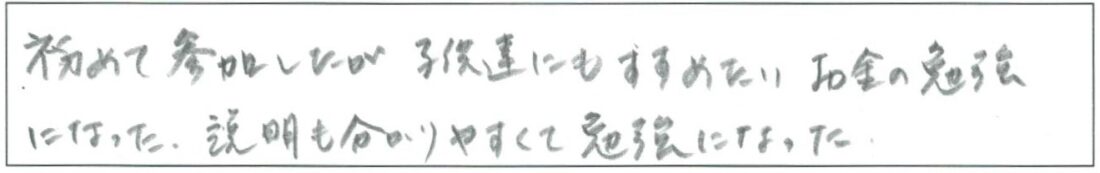 初めて参加したが 子供達にもすすめたい お金の勉強
になった. 説明も分かりやすくて勉強になった.